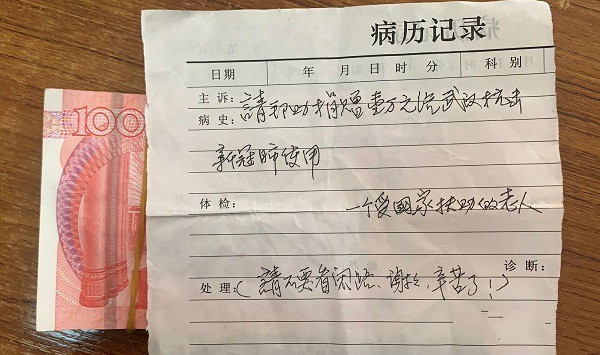 100
病历记录
日期 年 月 日 时 分 科别
主诉： 請邦助捐赠壹万元给武汉抗击
病史：
新冠 使用
体检： 一个受國家扶助的老人
诊断：
处理： （請不要看闭路、谢谢、辛苦了！）